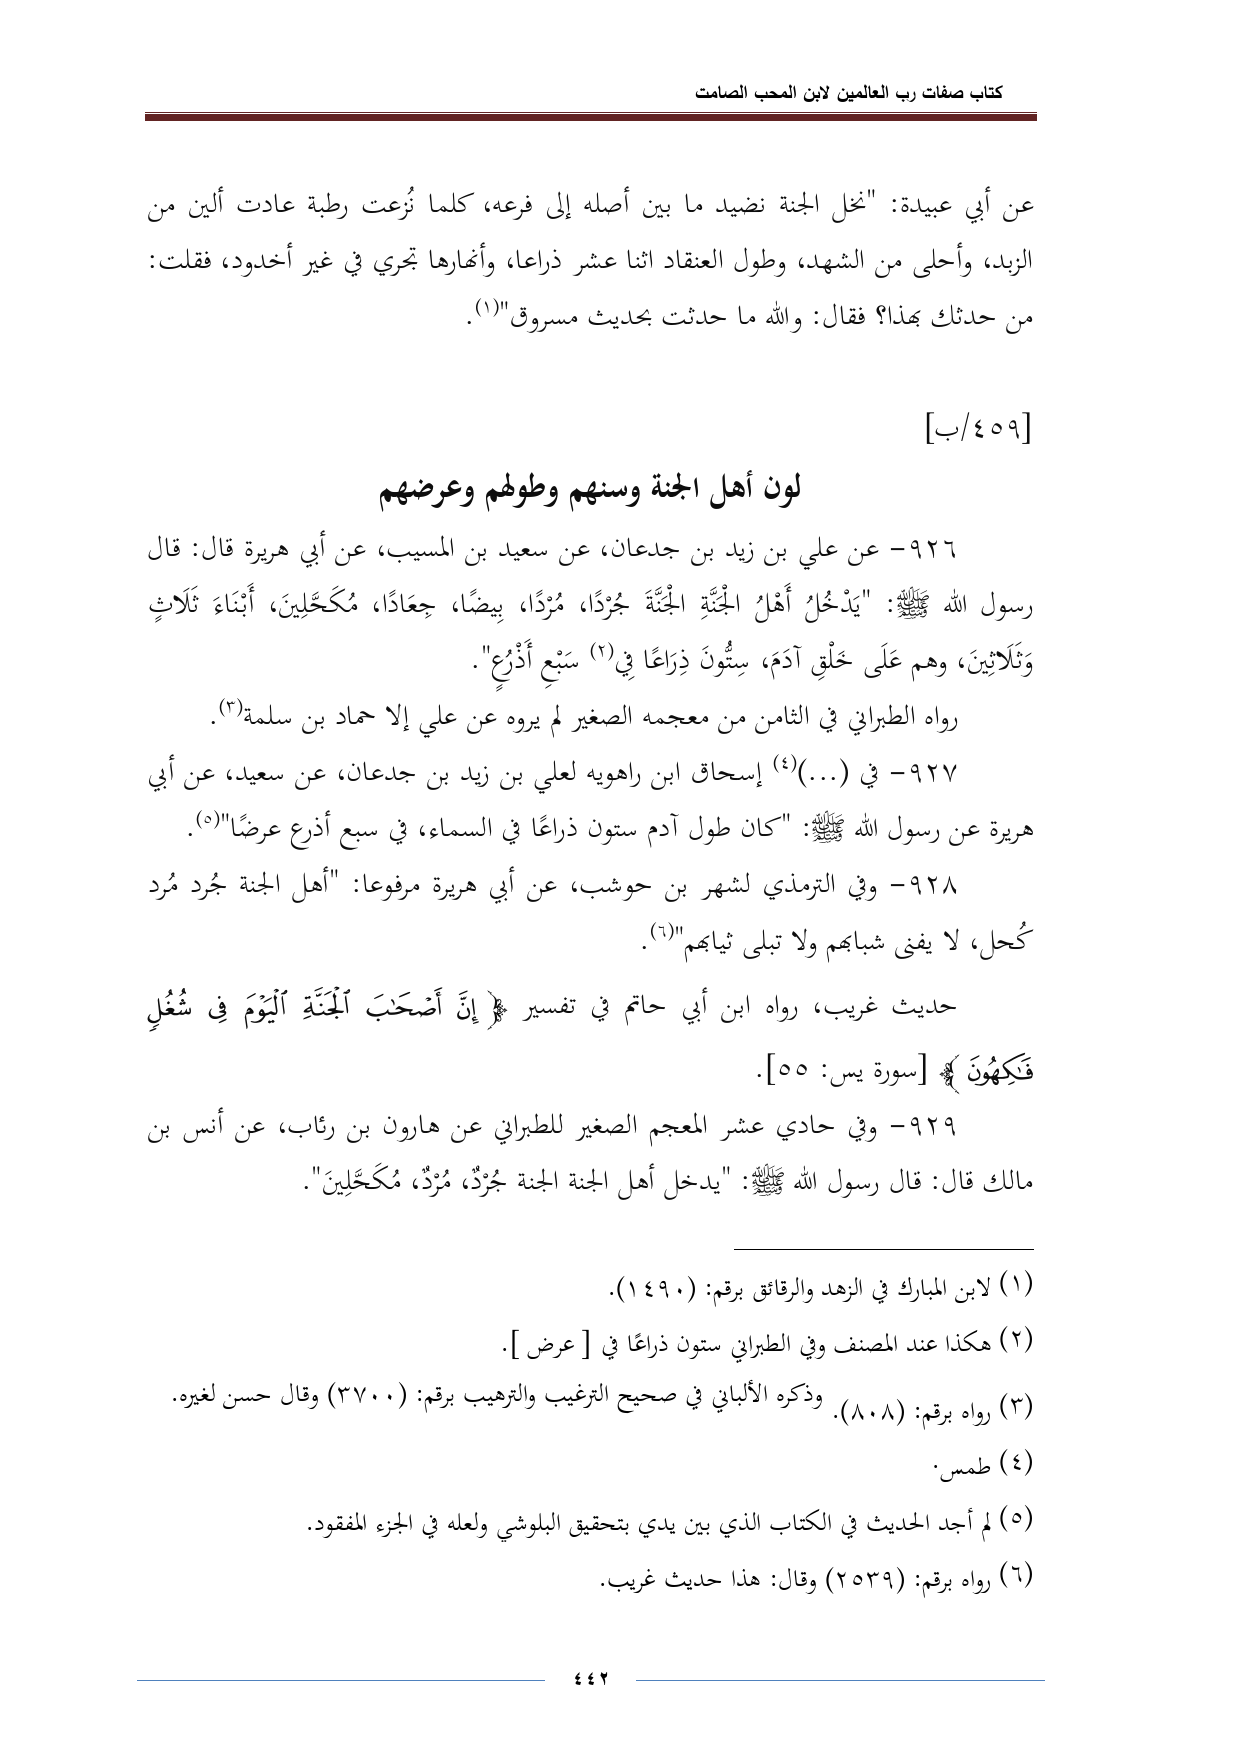 كتاب صفات رب العالمين لابن المحب الصامت
عن أبي عبيدة: "نخل الجنة نضيد ما بين أصله إلى فرعه، كلما نُزعت رطبة عادت ألين من
الزبد، وأحلى من الشهد، وطول العنقاد اثنا عشر ذراعا، وأنهارها تجري في غير أخدود، فقلت:
من حدثك بهذا؟ فقال: والله ما حدثت بحديث مسروق"(١).
[٤٥٩/ب]
لون أهل الجنة وسنهم وطولهم وعرضهم
٩٢٦- عن علي بن زيد بن جدعان، عن سعيد بن المسيب، عن أبي هريرة قال: قال
رسول الله ﷺ: "يَدْخُلُ أَهْلُ الْجَنَّةِ الْجَنَّةَ جُرْدًا، مُرْدًا، بِيضًا، جِعَادًا، مُكَحَّلِينَ، أَبْنَاءَ ثَلَاثٍ
وَثَلَاثِينَ، وهم عَلَى خَلْقِ آدَمَ، سِتُّونَ ذِرَاعًا فِي(٢) سَبْعِ أَذْرُعٍ".
رواه الطبراني في الثامن من معجمه الصغير لم يروه عن علي إلا حماد بن سلمة(٣).
٩٢٧- في (...)(٤) إسحاق ابن راهويه لعلي بن زيد بن جدعان، عن سعيد، عن أبي
هريرة عن رسول الله ﷺ: "كان طول آدم ستون ذراعًا في السماء، في سبع أذرع عرضًا"(٥).
٩٢٨- وفي الترمذي لشهر بن حوشب، عن أبي هريرة مرفوعا: "أهل الجنة جُرد مُرد
كُحل، لا يفنى شبابهم ولا تبلى ثيابهم"(٦).
حديث غريب، رواه ابن أبي حاتم في تفسير ﴿ إِنَّ أَصْحَٰبَ ٱلْجَنَّةِ ٱلْيَوْمَ فِى شُغُلٍ
فَٰكِهُونَ ﴾ [سورة يس: ٥٥].
٩٢٩- وفي حادي عشر المعجم الصغير للطبراني عن هارون بن رئاب، عن أنس بن
مالك قال: قال رسول الله ﷺ: "يدخل أهل الجنة الجنة جُرْدٌ، مُرْدٌ، مُكَحَّلِينَ".
(١) لابن المبارك في الزهد والرقائق برقم: (١٤٩٠).
(٢) هكذا عند المصنف وفي الطبراني ستون ذراعًا في [ عرض ].
(٣) رواه برقم: (٨٠٨). وذكره الألباني في صحيح الترغيب والترهيب برقم: (٣٧٠٠) وقال حسن لغيره.
(٤) طمس.
(٥) لم أجد الحديث في الكتاب الذي بين يدي بتحقيق البلوشي ولعله في الجزء المفقود.
(٦) رواه برقم: (٢٥٣٩) وقال: هذا حديث غريب.
٤٤٢